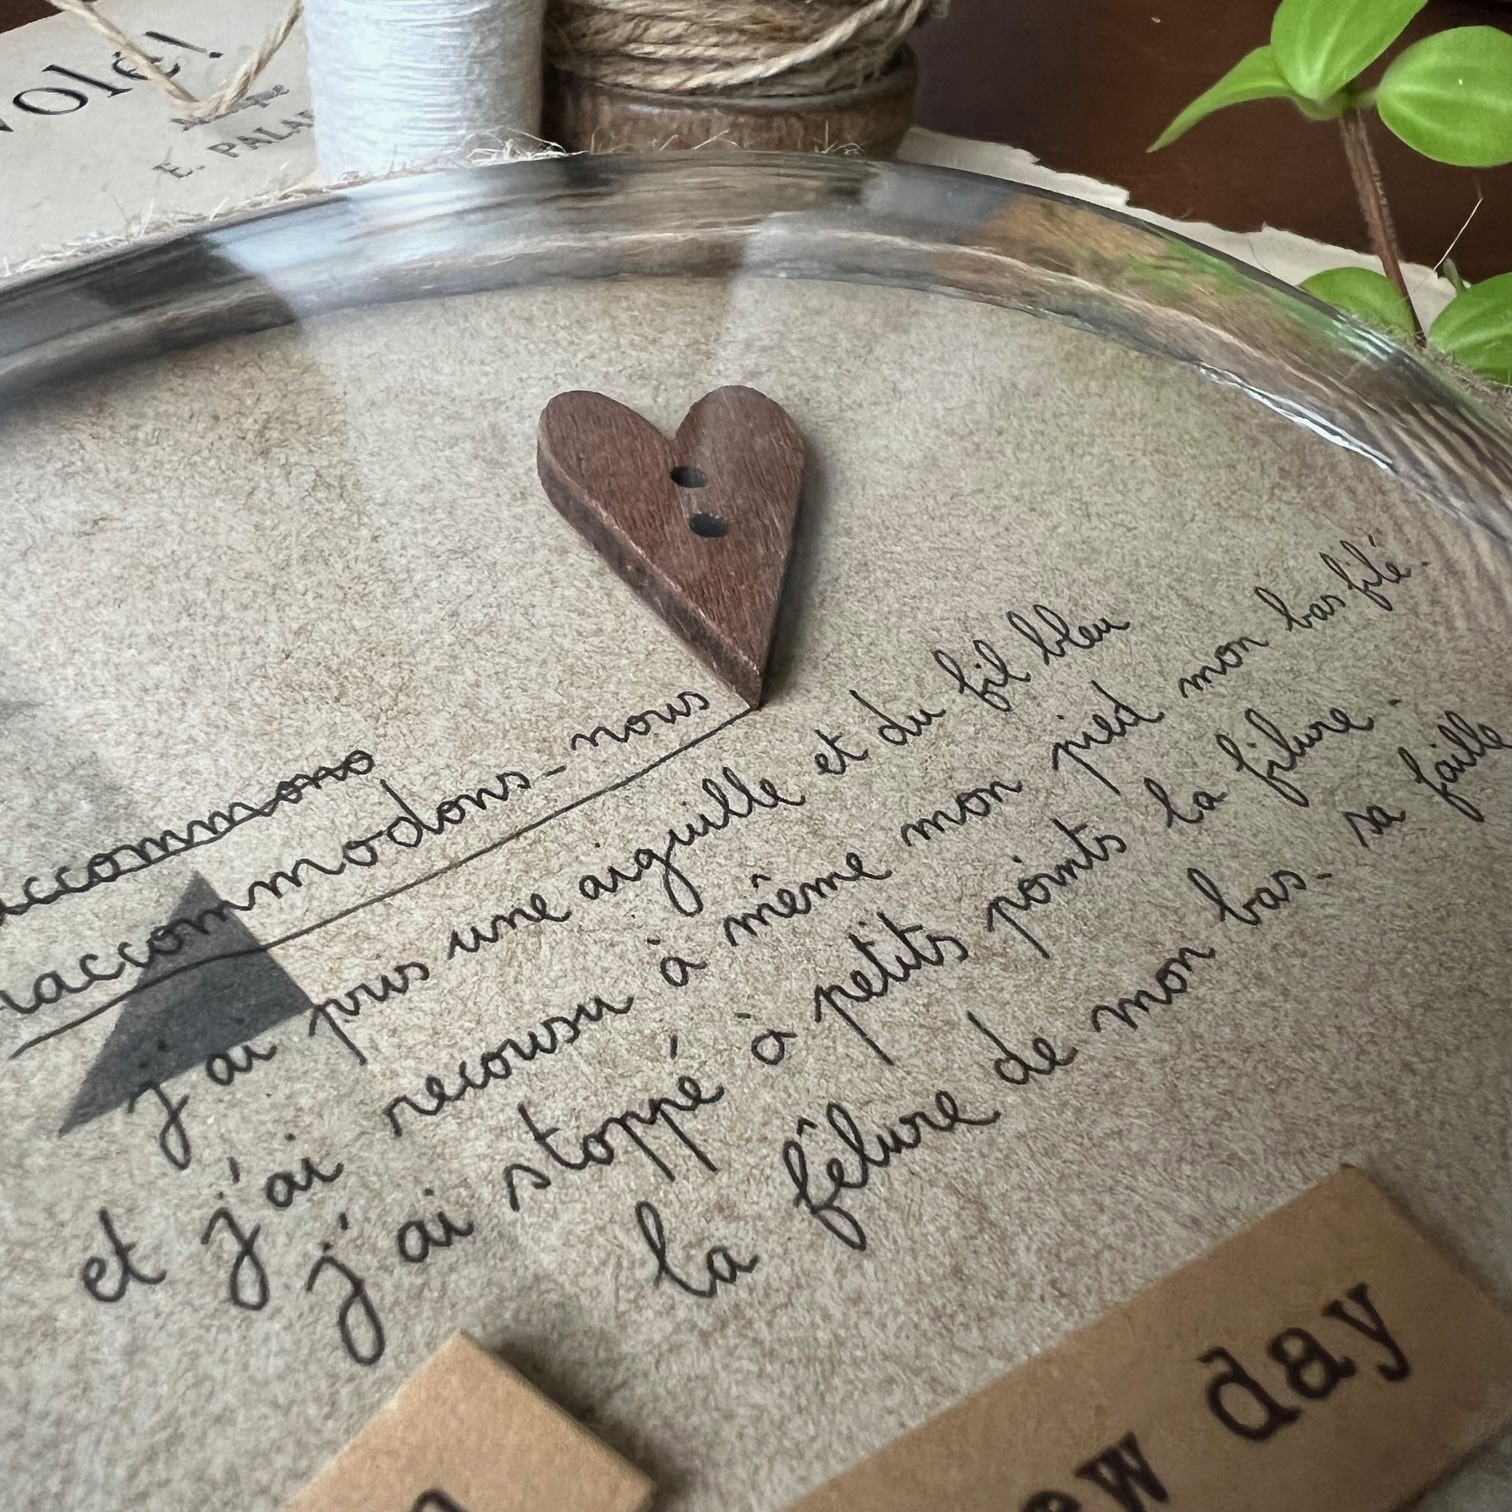 volé!
E. PALAI
accommono
raccommodons-nous
j'ai pris une aiguille et du fil bleu
et j'ai recousu à même mon pied mon bas filé.
j'ai stoppé à petits points la filure.
la fêlure de mon bas. sa faille
ew day